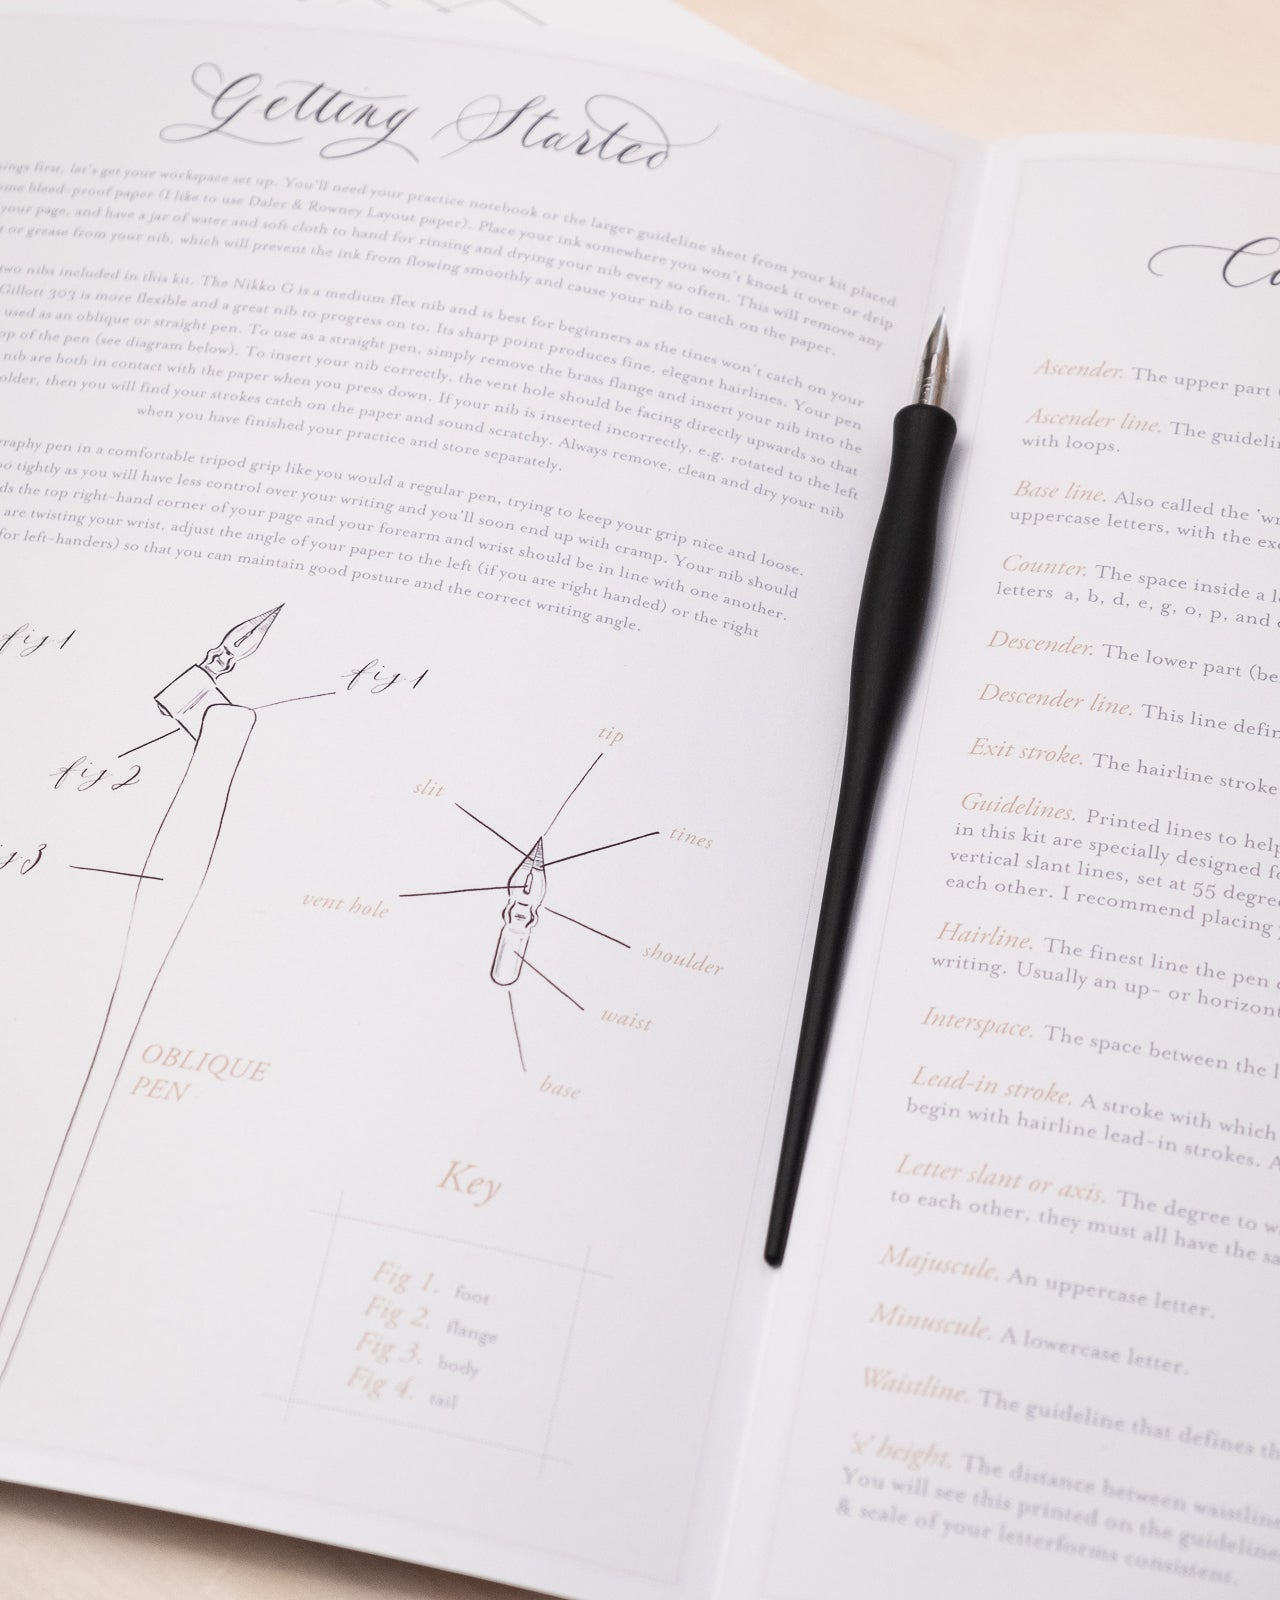 Getting Started
things first, let's get your workspace set up. You'll need your practice notebook or the larger guideline sheet from your kit placed
some bleed-proof paper (I like to use Daler & Rowney Layout paper). Place your ink somewhere you won't knock it over or drip
your page, and have a jar of water and soft cloth to hand for rinsing and drying your nib every so often. This will remove any
or grease from your nib, which will prevent the ink from flowing smoothly and cause your nib to catch on the paper.
two nibs included in this kit. The Nikko G is a medium flex nib and is best for beginners as the tines won't catch on your
Gillott 303 is more flexible and a great nib to progress on to. Its sharp point produces fine, elegant hairlines. Your pen
used as an oblique or straight pen. To use as a straight pen, simply remove the brass flange and insert your nib into the
op of the pen (see diagram below). To insert your nib correctly, the vent hole should be facing directly upwards so that
nib are both in contact with the paper when you press down. If your nib is inserted incorrectly, e.g. rotated to the left
older, then you will find your strokes catch on the paper and sound scratchy. Always remove, clean and dry your nib
when you have finished your practice and store separately.
graphy pen in a comfortable tripod grip like you would a regular pen, trying to keep your grip nice and loose.
oo tightly as you will have less control over your writing and you'll soon end up with cramp. Your nib should
ds the top right-hand corner of your page and your forearm and wrist should be in line with one another.
are twisting your wrist, adjust the angle of your paper to the left (if you are right handed) or to the right
for left-handers) so that you can maintain good posture and the correct writing angle.
fig 1
fig 1
fig 2
fig 3
tip
slit
tines
vent hole
shoulder
waist
base
OBLIQUE
PEN
Key
Fig 1. foot
Fig 2. flange
Fig 3. body
Fig 4. tail
Ca
Ascender. The upper part
Ascender line. The guidelin
with loops.
Base line. Also called the 'wr
uppercase letters, with the exc
Counter. The space inside a le
letters a, b, d, e, g, o, p, and
Descender. The lower part (be
Descender line. This line defin
Exit stroke. The hairline stroke
Guidelines. Printed lines to help
in this kit are specially designed fo
vertical slant lines, set at 55 degree
each other. I recommend placing
Hairline. The finest line the pen
writing. Usually an up- or horizont
Interspace. The space between the l
Lead-in stroke. A stroke with which
begin with hairline lead-in strokes. A
Letter slant or axis. The degree to w
to each other, they must all have the sa
Majuscule. An uppercase letter.
Minuscule. A lowercase letter.
Waistline. The guideline that defines th
'x' height. The distance between waistline
You will see this printed on the guideline
& scale of your letterforms consistent.